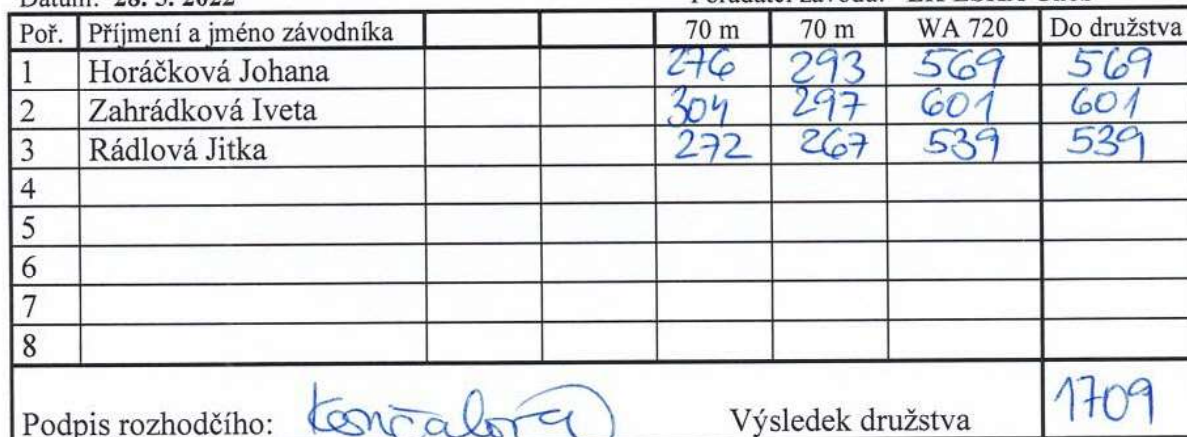 Datum: 28. 5. 2022 Pořadatel závodu:
Poř. Příjmení a jméno závodníka 70 m 70 m WA 720 Do družstva
1 Horáčková Johana 276 293 569 569
2 Zahrádková Iveta 304 297 601 601
3 Rádlová Jitka 272 267 539 539
4
5
6
7
8
Podpis rozhodčího: Výsledek družstva 1709